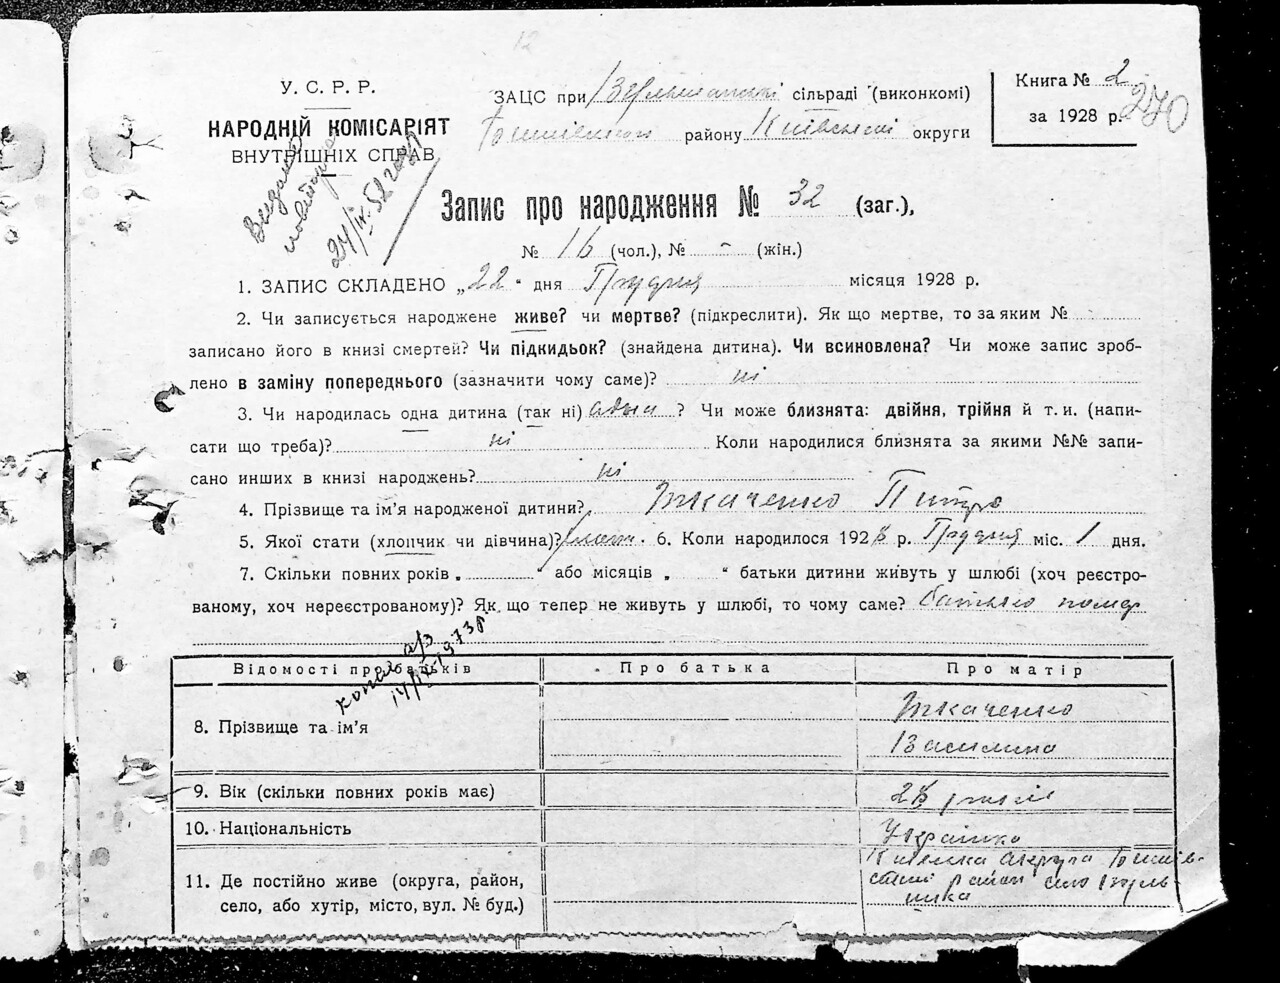 12
У. С. Р. Р.
НАРОДНІЙ КОМІСАРІЯТ
ВНУТРІШНІХ СПРАВ
ЗАЦС при сільраді (виконкомі)
району Київської округи
Книга № 2
за 1928 р.
270
Видано
повторно
24/IV-52
Запис про народження № 32 (заг.),
№ 16 (чол.), № - (жін.)
1. ЗАПИС СКЛАДЕНО „22" дня Грудня місяця 1928 р.
2. Чи записується народжене живе? чи мертве? (підкреслити). Як що мертве, то за яким №
записано його в книзі смертей? Чи підкидьок? (знайдена дитина). Чи всиновлена? Чи може запис зроб-
лено в заміну попереднього (зазначити чому саме)? ні
3. Чи народилась одна дитина (так ні) одна ? Чи може близнята: двійня, трійня й т. и. (напи-
сати що треба)? ні Коли народилися близнята за якими №№ запи-
сано инших в книзі народжень? ні
4. Прізвище та ім'я народженої дитини? Ткаченко Петро
5. Якої стати (хлопчик чи дівчина)? 6. Коли народилося 1928 р. Грудня міс. 1 дня.
7. Скільки повних років „ " або місяців „ " батьки дитини живуть у шлюбі (хоч реєстро-
ваному, хоч нереєстрованому)? Як що тепер не живуть у шлюбі, то чому саме? батько помер
копія а/з
1973р.
Відомості про батьків Про батька Про матір
8. Прізвище та ім'я Ткаченко
Василина
9. Вік (скільки повних років має) 28 років
10. Національність Українка
11. Де постійно живе (округа, район,
село, або хутір, місто, вул. № буд.) округа
район село